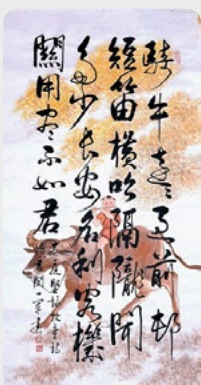 騎牛遠〻過前邨
短笛橫吹隔隴聞
多少長安名利客機
關用盡不如君